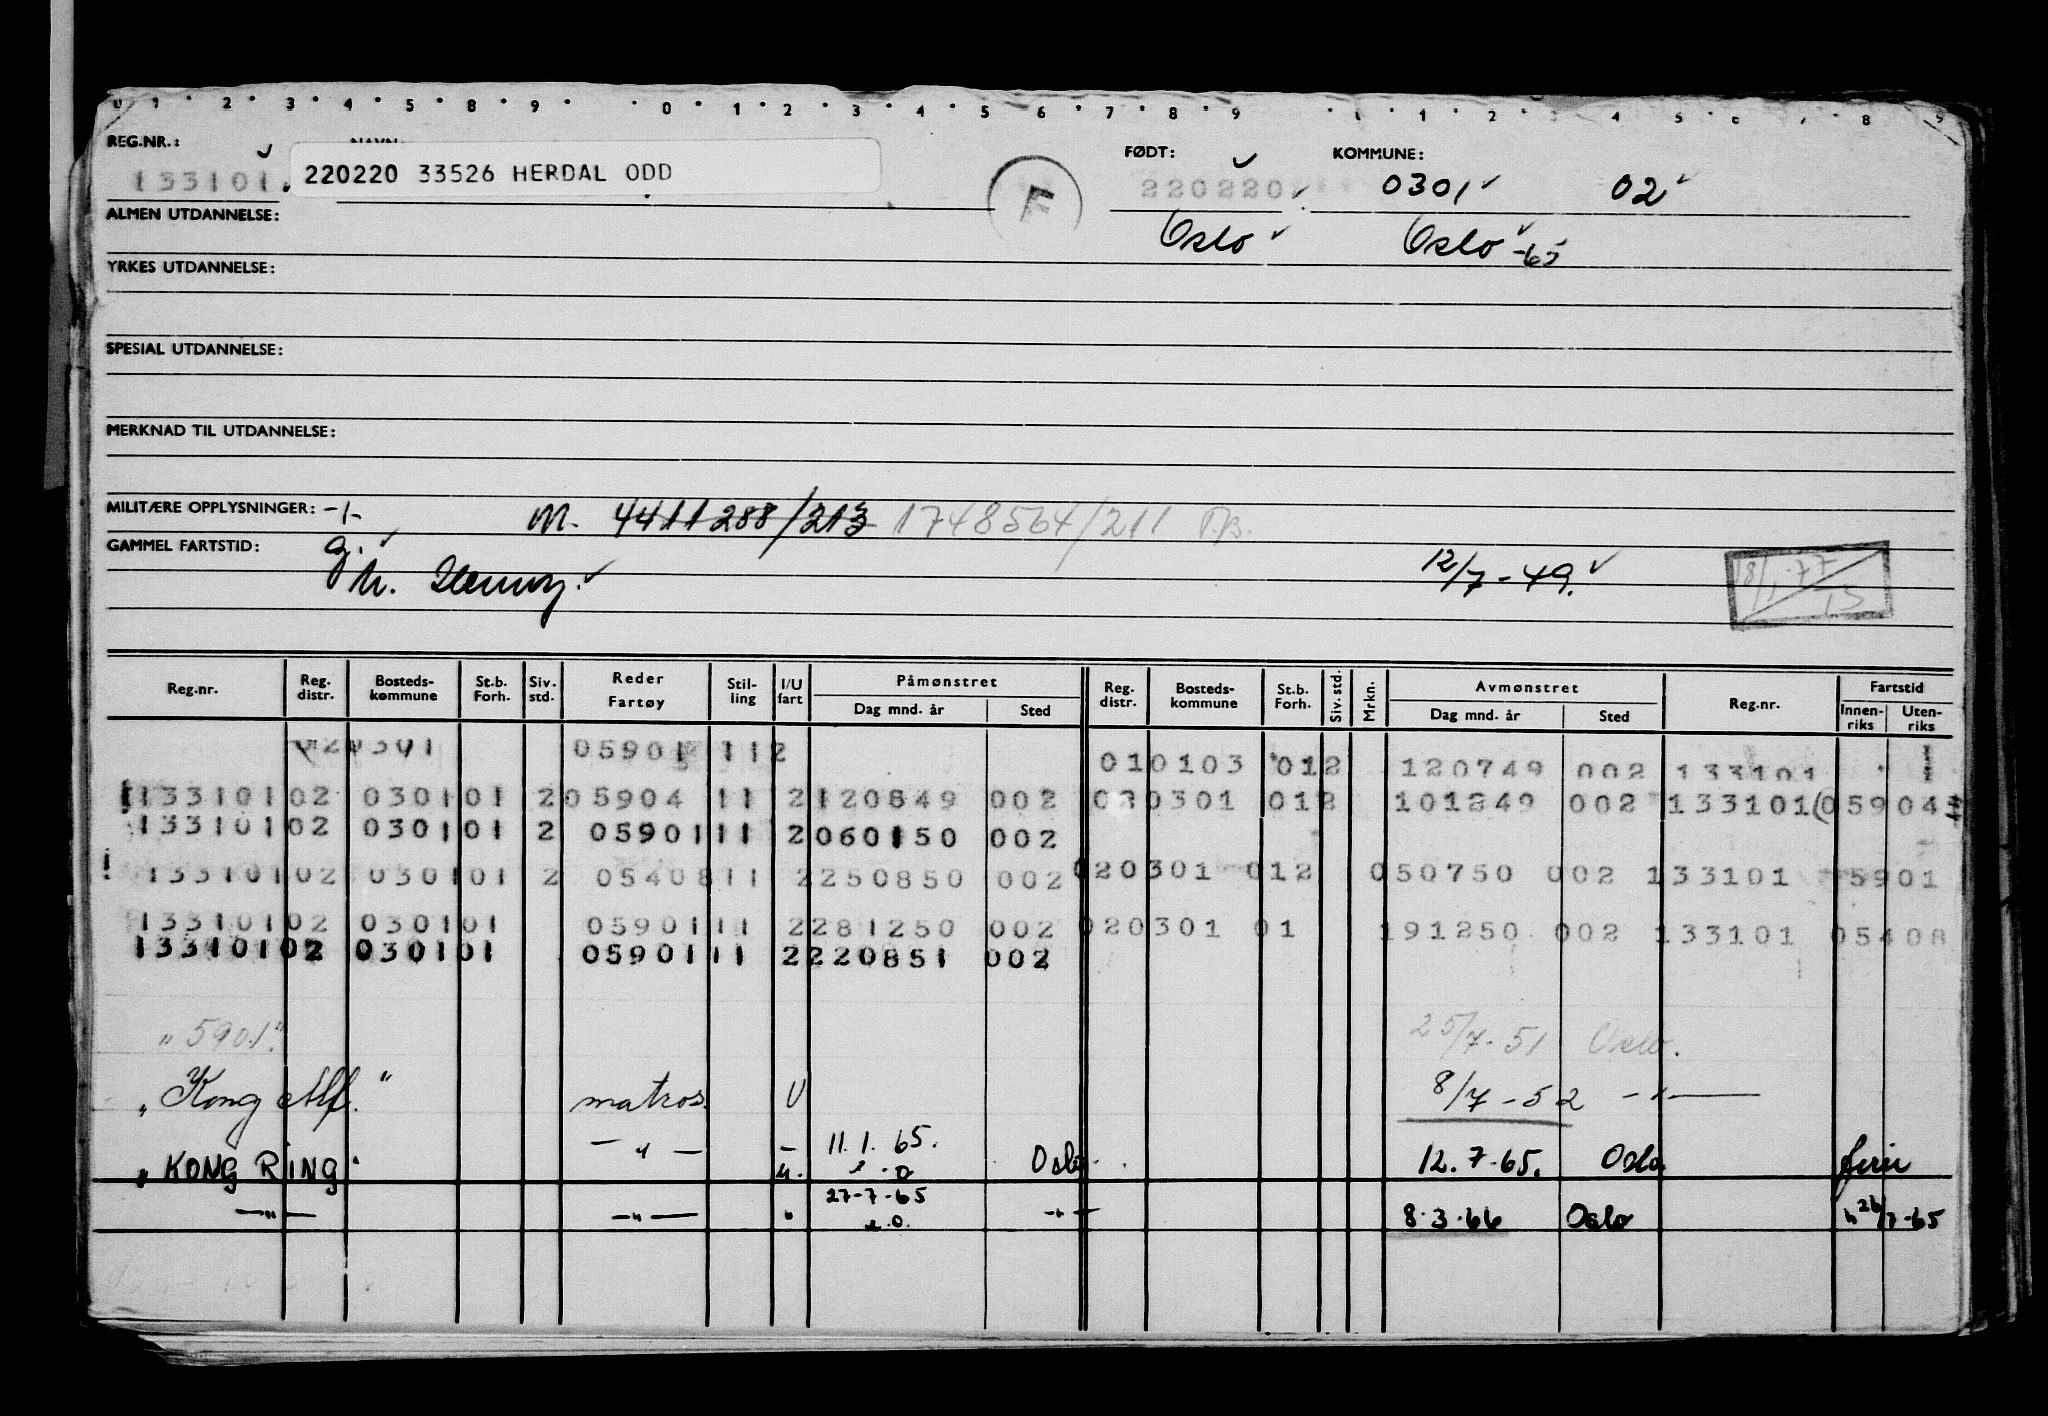 0 1 2 3 4 5 8 9 0 1 2 3 4 5 6 7 8 9 1 1 2 3 4 5 6 7 8 9
REG.NR.: NAVN FØDT: KOMMUNE:
133101 220220 33526 HERDAL ODD F 220220 0301 02
ALMEN UTDANNELSE: Oslo Oslo -65
YRKES UTDANNELSE:
SPESIAL UTDANNELSE:
MERKNAD TIL UTDANNELSE:
MILITÆRE OPPLYSNINGER: -1- M. 4411288/213 1748564/211
GAMMEL FARTSTID: g.
12/7-49. 18/1-77 15
Reg.nr. Reg. distr. Bosteds- kommune St.b. Forh. Siv. std. Reder Fartøy Stil- ling I/U fart Påmønstret Dag mnd. år Sted Reg. distr. Bosteds- kommune St.b. Forh. Siv. std. Mrkn. Avmønstret Dag mnd. år Sted Reg.nr. Fartstid Innen- riks Uten- riks
020301 05901 112 010103 012 120749 002 133101
133101 02 0301 01 2 05904 11 2 120849 002 020301 012 101249 002 133101 05904
133101 02 0301 01 2 05901 11 2 060150 002
133101 02 0301 01 2 05408 11 2 250850 002 020301 012 050750 002 133101 5901
133101 02 0301 01 05901 11 2 281250 002 020301 01 191250 002 133101 05408
133101 02 0301 01 05901 11 2 220851 002
"5901." 25/7-51 Oslo.
"Kong Alf." matros. U 8/7-52 -"-
"KONG RING" -"- 11.1.65. Oslo 12.7.65. Oslo ferie
-"- -"- " 27-7-65 e.o. -"- 8.3.66 Oslo 26/7-65